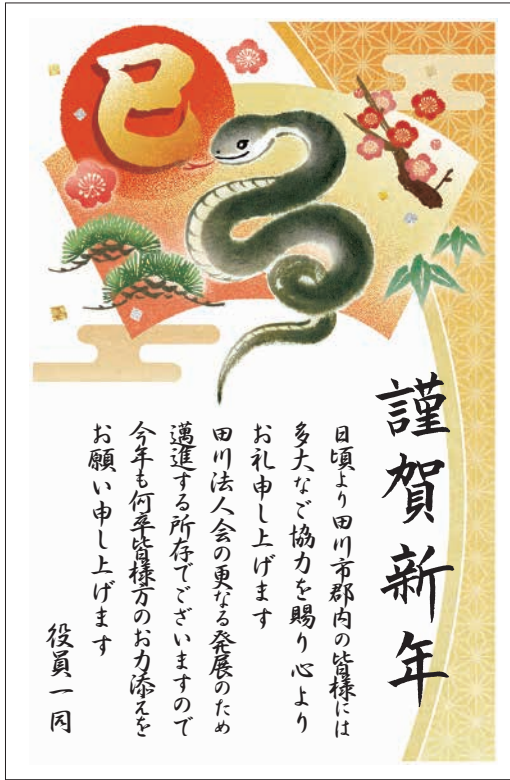 巳
謹賀新年
日頃より田川市郡内の皆様には
多大なご協力を賜り心より
お礼申し上げます
田川法人会の更なる発展のため
邁進する所存でございますので
今年も何卒皆様方のお力添えを
お願い申し上げます
役員一同